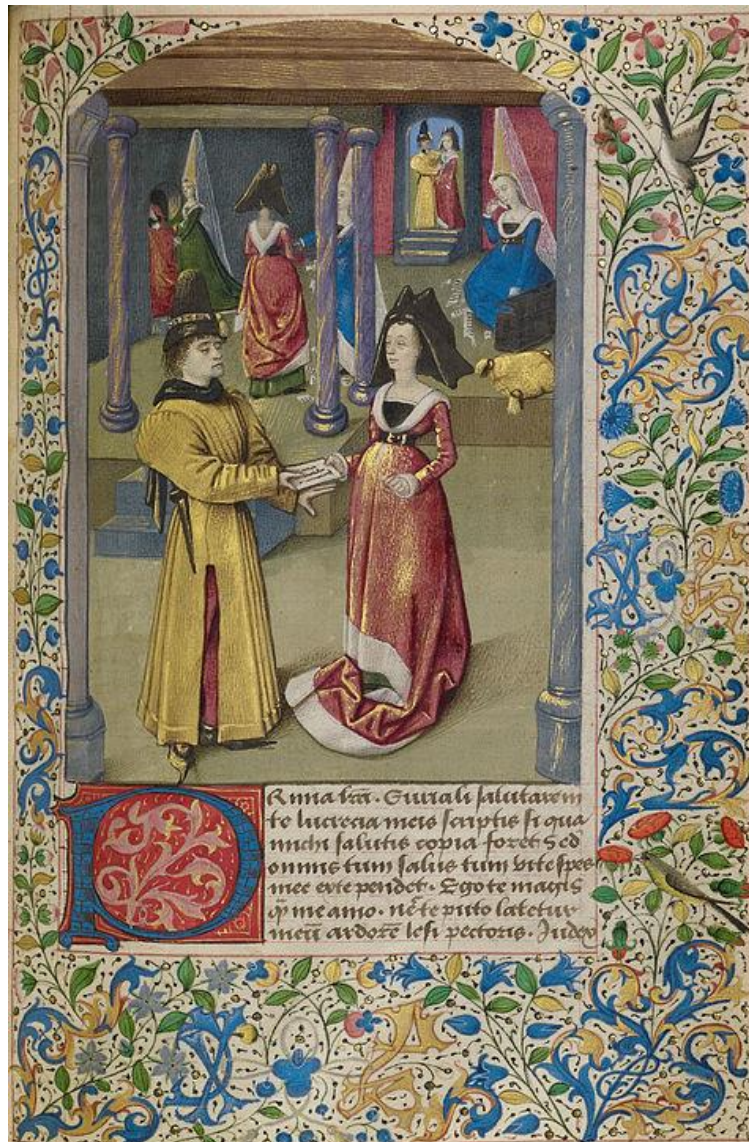 PRima lr̃a · Euriali salutarem
te lucrecia meis scriptis si qua
michi salutis copia foret Sed
omnis tum salus tum vite spes
mee exte pendet · Ego te magis
q̃ me amo · nc̃ te puto latere
meū ardorē lesi pectoris · Iudex